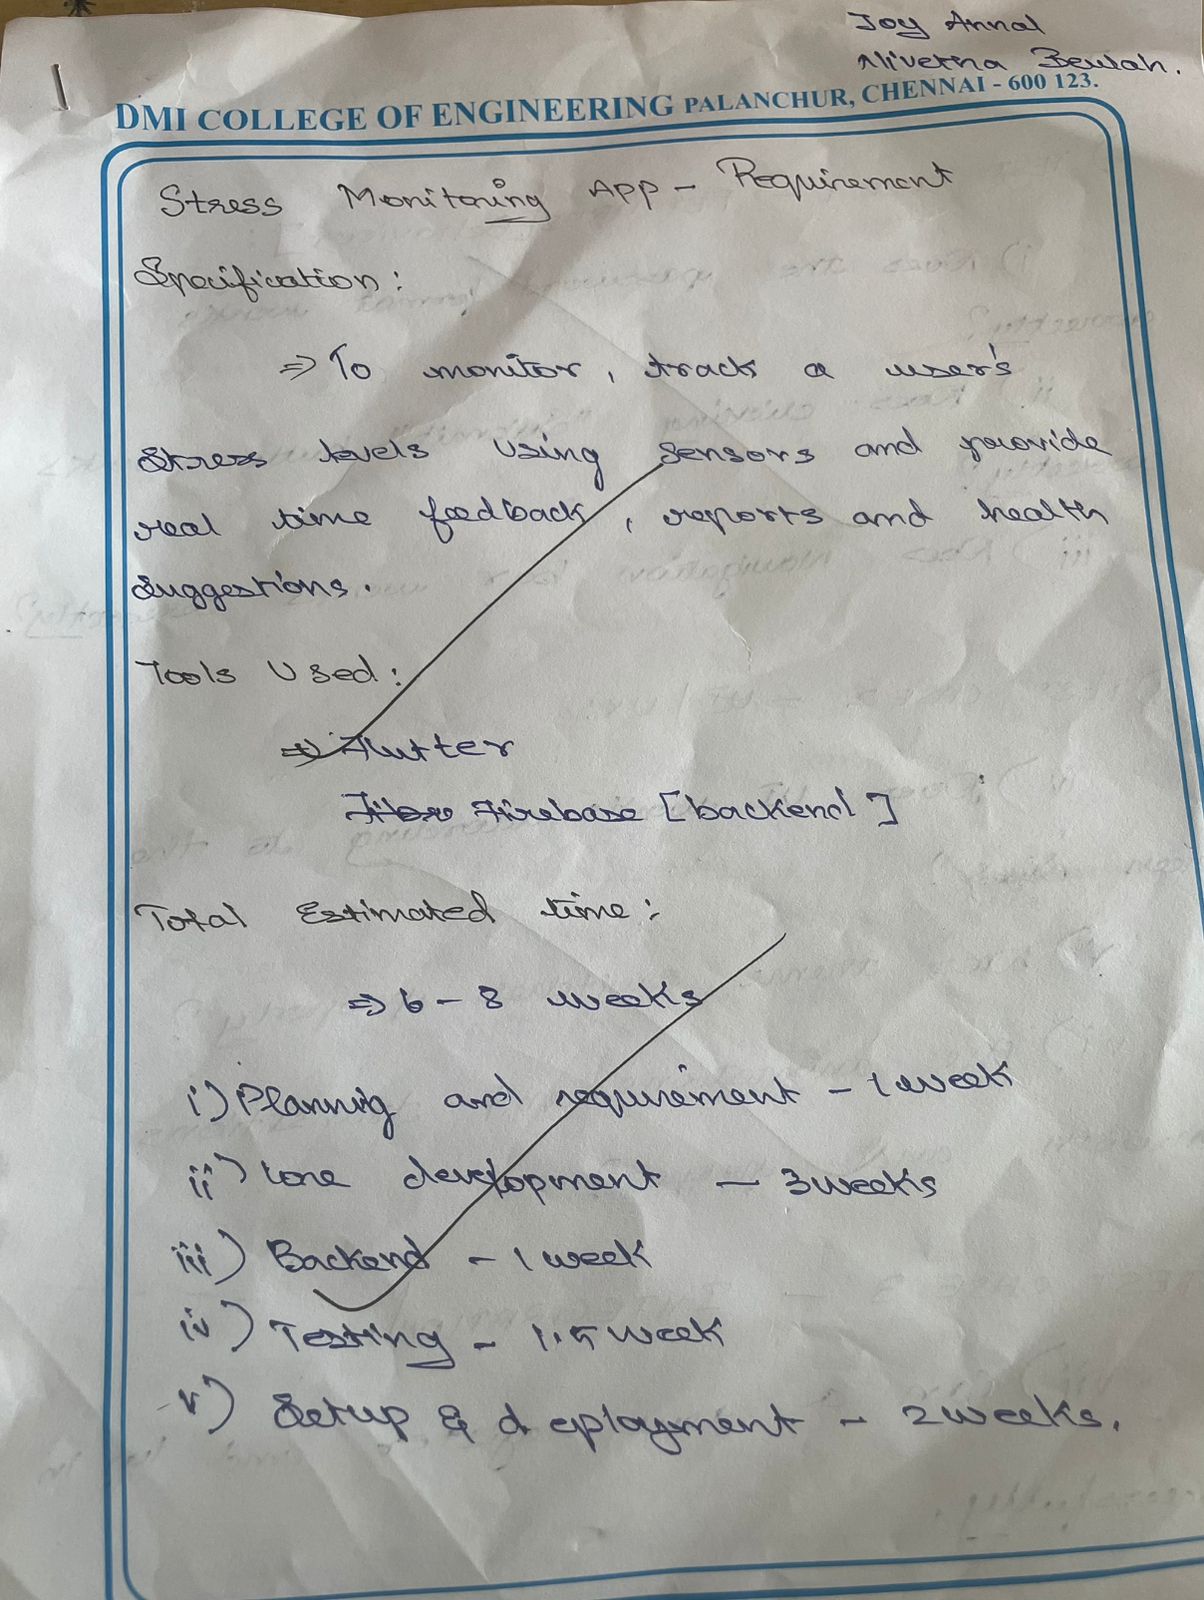 Joy Annal
Nivetha Beulah.
DMI COLLEGE OF ENGINEERING PALANCHUR, CHENNAI - 600 123.
Stress Monitoring App - Requirement
Specification:
⇒ To monitor, track a user's
stress levels using sensors and provide
real time feedback, reports and health
suggestions.
Tools Used:
⇒ Flutter
Firebase [backend]
Total Estimated time:
⇒ 6 - 8 weeks
i) Planning and requirement - 1 week
ii) Core development - 3 weeks
iii) Backend - 1 week
iv) Testing - 1.5 week
v) Setup & deployment - 2 weeks.